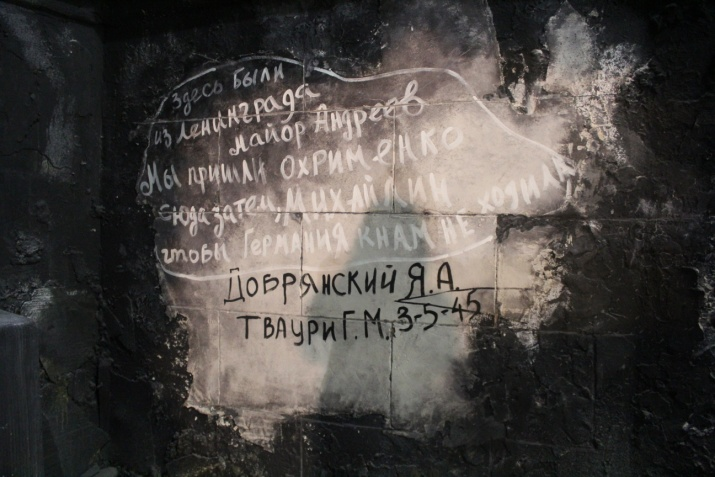 Здесь были
из Ленинграда
майор Андреев
Мы пришли Охрименко
сюда затем, Михайлин
чтобы Германия к нам не ходила
Добрянский Я.А.
Тваури Г.М. 3-5-45